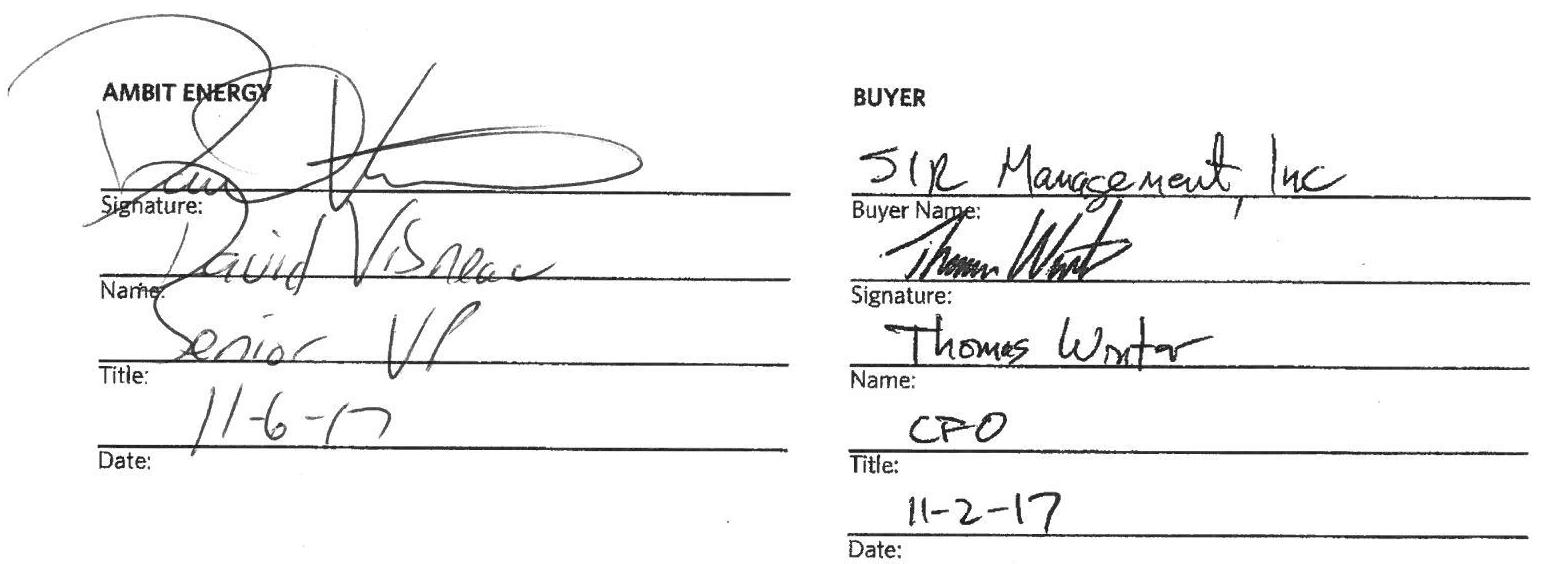 AMBIT ENERGY
Signature:
David
Name:
Senior VP
Title:
11-6-17
Date:
BUYER
SIR Management, Inc
Buyer Name:
Signature:
Thomas Winter
Name:
CFO
Title:
11-2-17
Date: